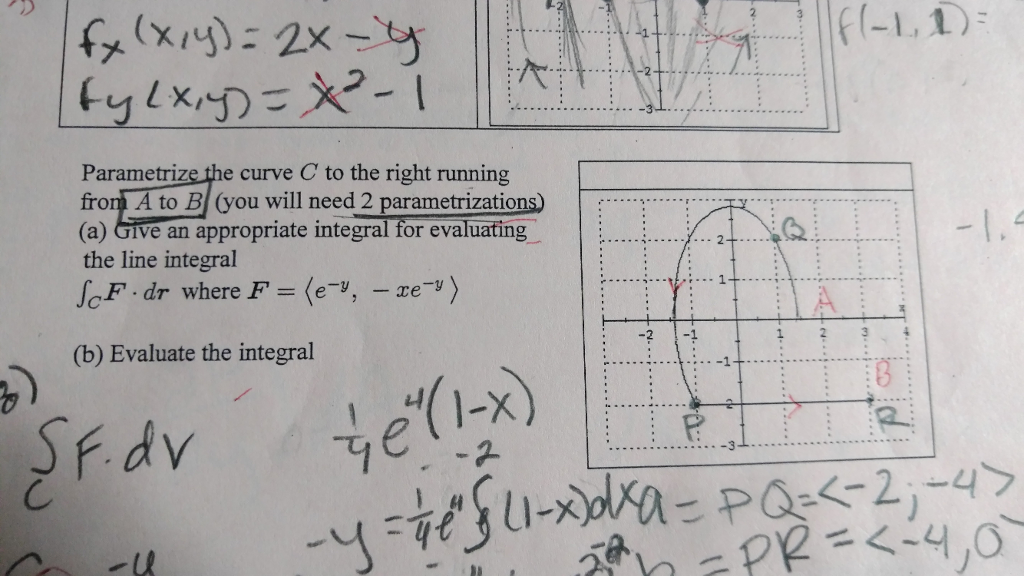 fx(x,y) = 2x - y
fy(x,y) = x² - 1
-2
-1
1
2
3
-2
-3
f(-1, 1) =
Parametrize the curve C to the right running
from A to B (you will need 2 parametrizations)
(a) Give an appropriate integral for evaluating
the line integral
∫C F · dr where F = ⟨e^−y, − xe^−y⟩
(b) Evaluate the integral
y
2
1
-2
-1
1
2
3
4
x
-1
-2
-3
Q
A
B
P
R
-1.
b)
∫C F. dr
1/4 e^4 (1-x)
-2
-y = 1/4 e^4 ∫ (1-x)dx a = PQ = <-2, -4>
b = PR = <-4, 0
-4